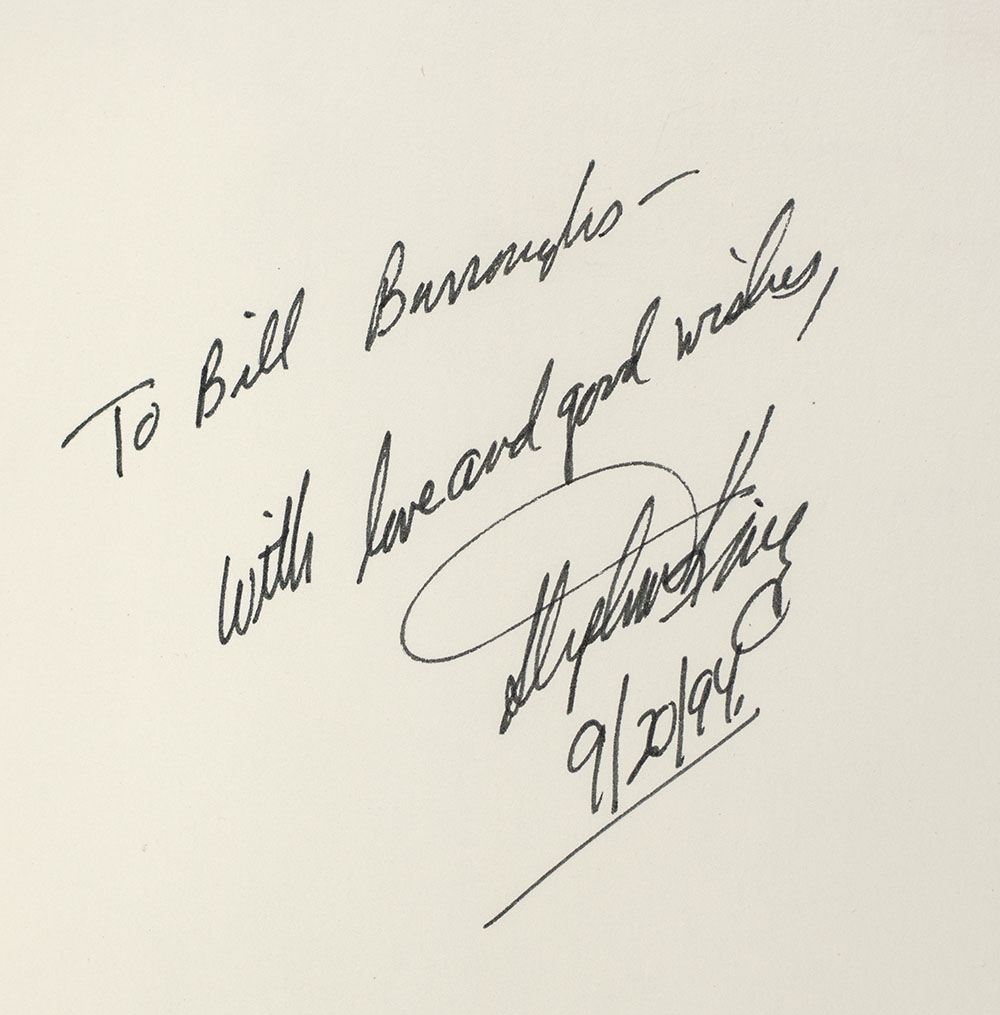 To Bill Burroughs—
With love and good wishes,
Stephen King
9/20/94.